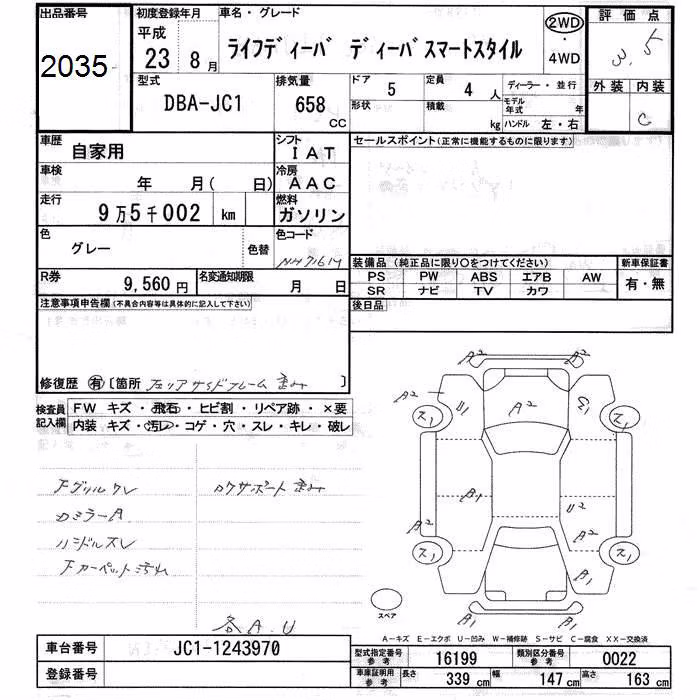 出品番号
2035
初度登録年月
平成
23 8月
車名・グレード
ライフディーバ ディーバスマートスタイル
2WD
・
4WD
評価点
3.5
外装 内装
C
型式
DBA-JC1
排気量
658
CC
ドア 5
形状
定員 4 人
積載 kg
ディーラー・並行
モデル年式 年
ハンドル 左・右
車歴
自家用
シフト
IAT
車検
年 月( 日)
冷房
AAC
走行
9万5千002 km
燃料
ガソリン
色
グレー
色替
色コード
NH716M
R券
9,560円
名変通知期限
月 日
セールスポイント(正常に機能するものに限ります)
装備品(純正品に限り○をつけてください)
PS PW ABS エアB AW
SR ナビ TV カワ
新車保証書
有・無
後日品
注意事項申告欄(不具合内容等は具体的に記入して下さい)
修復歴 有 [箇所 フロアサイドフレーム 歪み ]
検査員
記入欄
FW キズ・飛石・ヒビ割・リペア跡・×要
内装 キズ・汚レ・コゲ・穴・スレ・キレ・破レ
Fグリルワレ
ロワサポート歪み
ロミラーA
ハンドルスレ
Fカーペット汚れ
各A.U
A2
A2
U1
A2
ス1
ス1
B1
A2
U2
A2
A2
ス1
ス1
B1
B1
スペア
A-キズ E-エクボ U-凹み W-補修跡 S-サビ C-腐食 XX-交換済
車台番号
JC1-1243970
登録番号
型式指定番号
参考
16199
類別区分番号
参考
0022
車庫証明用
参考
長さ 339 cm 幅 147 cm 高さ 163 cm